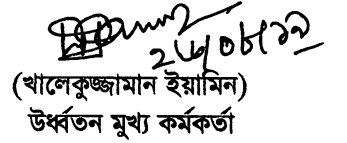 (খালেকুজ্জামান ইয়ামিন)
উর্ধ্বতন মুখ্য কর্মকর্তা